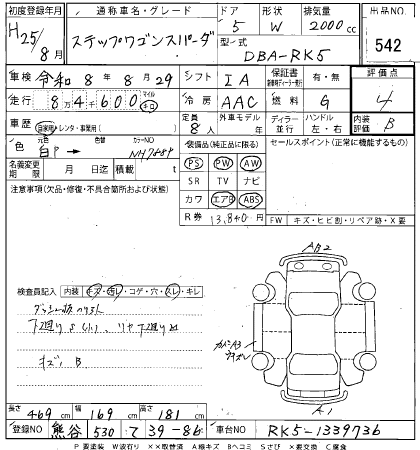 初度登録年月 通称車名・グレード ドア 形状 排気量 出品NO.
H25/8月 ステップワゴンスパーダ 5 W 2000cc 542
型式 DBA-RK5
車検 令和 8年 8月 29 シフト IA 保証書 有・無 評価点
走行 84600 マイル キロ 冷房 AAC 燃料 G 4
車歴 自家用・レンタ・事業用( ) 定員 8人 外車モデル ディーラー・並行 ハンドル 左・右 内装評価 B
色 元色 白P → 色替 カラーNO NH788P 装備品(純正品に限る) セールスポイント(正常に機能するもの)
名義変更期限 月 日 積載 t PS PW AW
注意事項(欠品・修復・不具合箇所および状態) SR TV ナビ
カワ エアB ABS
R券 13,840円 FW キズ・ヒビ割・リペア跡・X要
AB2
検査員記入 内装 キズ・汚レ・コゲ・穴・スレ・キレ
キズ、B
A1
長さ 469cm 幅 169cm 高さ 181cm
登録NO 熊谷 530 て 39-86 車台NO RK5-1339736
P 要塗装 W波石り ××取替済 A線キズ Bヘコミ Sさび ×要交換 C腐食